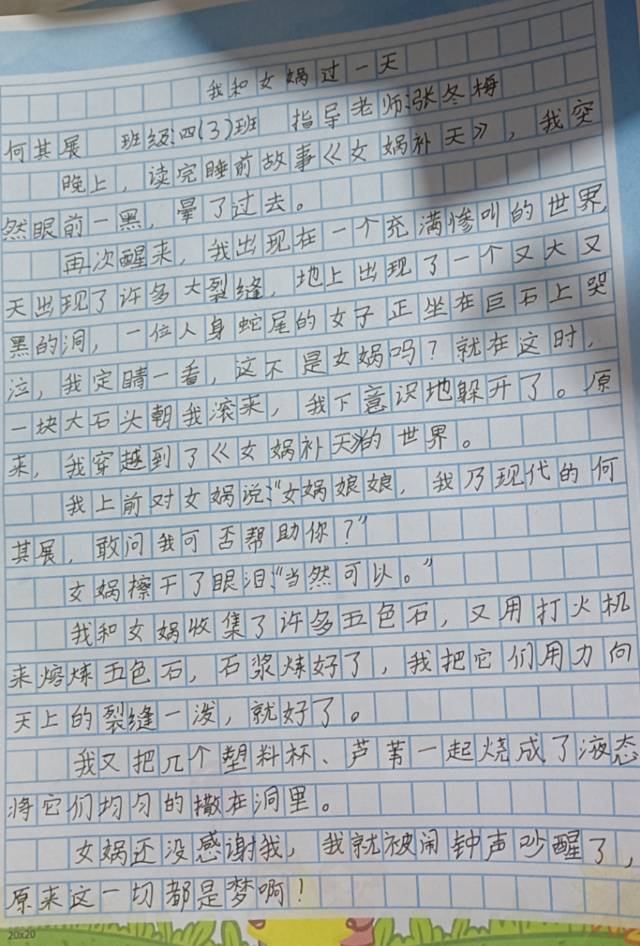 我和女娲过一天
何其展 班级:四(3)班 指导老师:张冬梅
晚上，读完睡前故事《女娲补天》，我突
然眼前一黑，晕了过去。
再次醒来，我出现在一个充满惨叫的世界，
天出现了许多大裂缝，地上出现了一个又大又
黑的洞，一位人身蛇尾的女子正坐在巨石上哭
泣，我定睛一看，这不是女娲吗？就在这时，
一块大石头朝我滚来，我下意识地躲开了。原
来，我穿越到了《女娲补天》的世界。
我上前对女娲说:“女娲娘娘，我乃现代的何
其展，敢问我可否帮助你？”
女娲擦干了眼泪:“当然可以。”
我和女娲收集了许多五色石，又用打火机
来熔炼五色石，石浆炼好了，我把它们用力向
天上的裂缝一泼，就好了。
我又把几个塑料杯、芦苇一起烧成了液态
将它们均匀的撒在洞里。
女娲还没感谢我，我就被闹钟声吵醒了，
原来这一切都是梦啊！
20x20